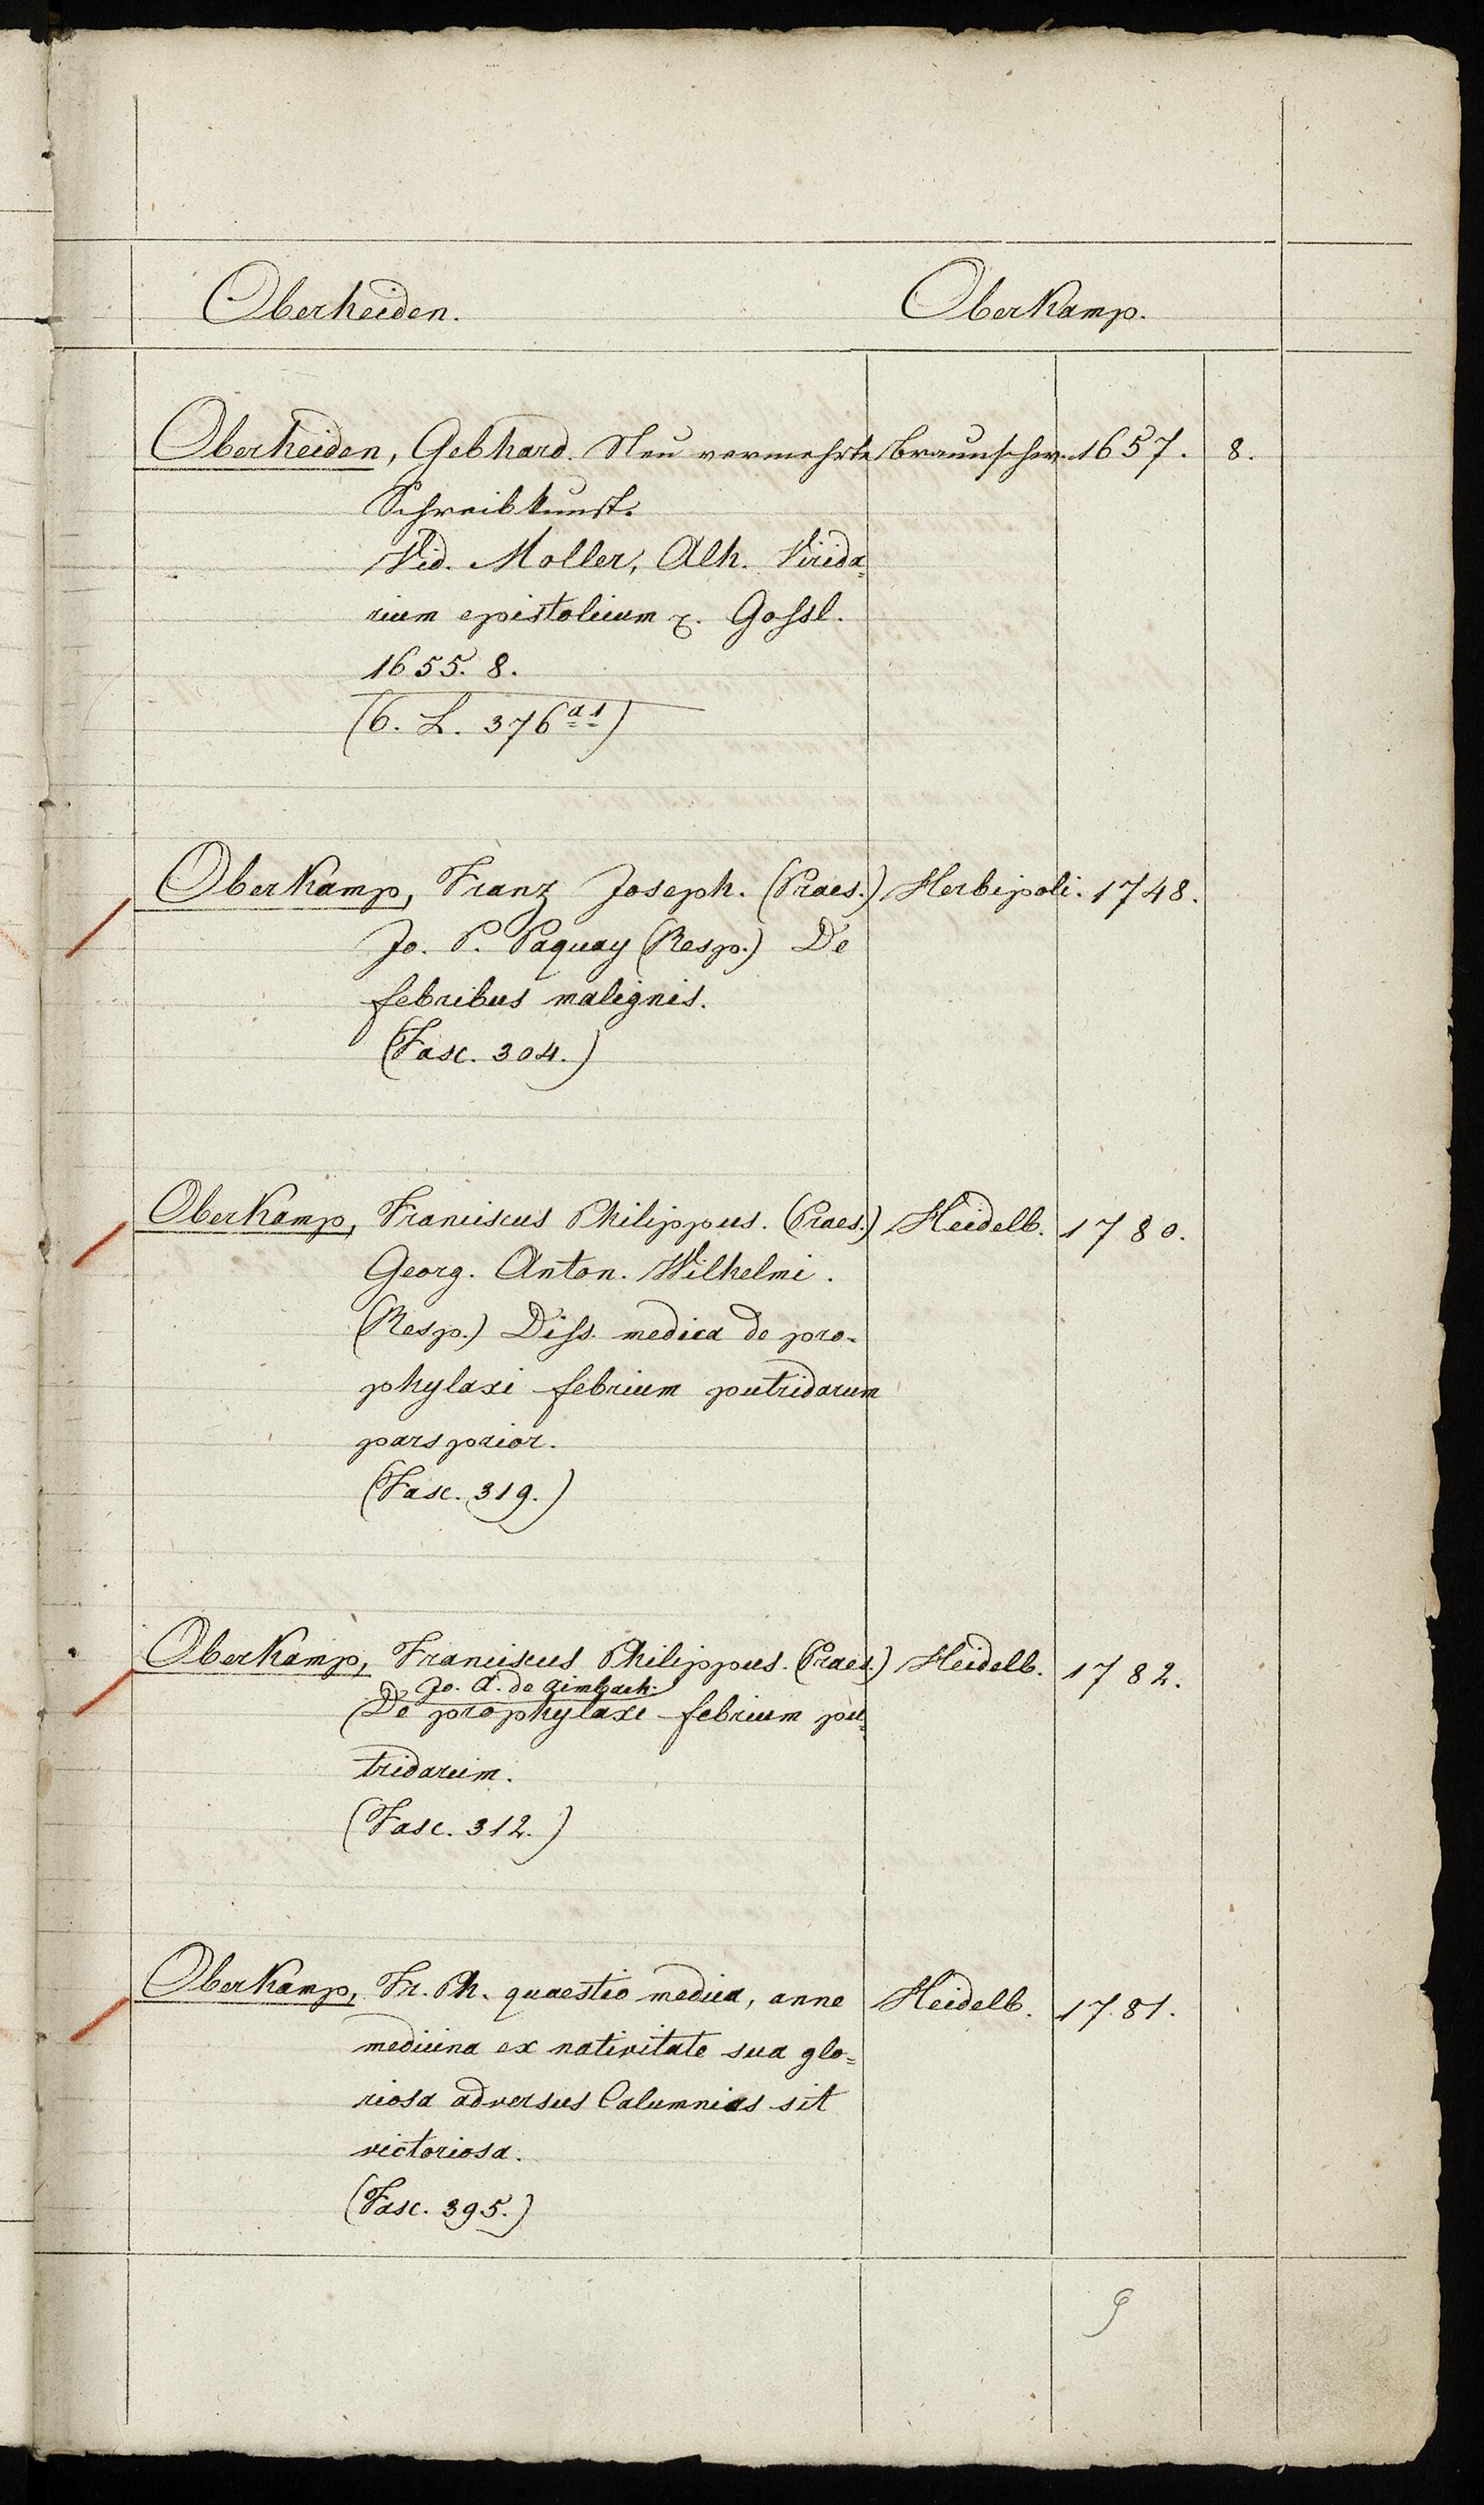 Oberheiden. Oberkamp.
Oberheiden, Gebhard. Neu vermehrte Braunschw. 1657. 8.
Schreibkunst.
Vid. Moller, Alh. Virida=
rium epistolicum &. Gossl.
1655. 8.
(6. L. 376 a 1)
Oberkamp, Franz Joseph. (Praes.) Herbipoli. 1748.
Jo. P. Paquay (Resp.) De
febribus malignis.
(Fasc. 304.)
Oberkamp, Franciscus Philippus. (Praes.) Heidelb. 1780.
Georg. Anton. Wilhelmi.
(Resp.) Diss. medica de pro-
phylaxi febrium putridarum
pars prior.
(Fasc. 319.)
Oberkamp, Franciscus Philippus. (Praes.) Heidelb. 1782.
Jo. A. de Aimbach.
De prophylaxi febrium pu=
tridarum.
(Fasc. 312.)
Oberkamp, Fr. Ph. quaestio medica, anne Heidelb. 1781.
medicina ex nativitate sua glo=
riosa adversus Calumnias sit
victoriosa.
(Fasc. 395.)